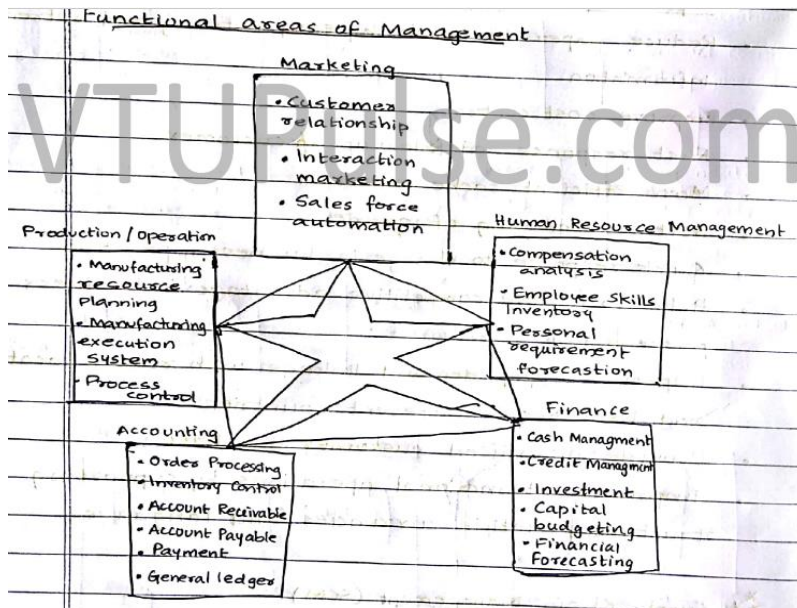 Functional areas of Management
Marketing
• Customer
relationship
• Interaction
marketing
• Sales force
automation
VTUPulse.com
Production / Operation
• Manufacturing
resource
planning
• Manufacturing
execution
system
• Process
control
Human Resource Management
• Compensation
analysis
• Employee Skills
Inventory
• Personal
requirement
forecastion
Accounting
• Order Processing
• Inventory Control
• Account Receivable
• Account Payable
• Payment
• General ledger
Finance
• Cash Managment
• Credit Managment
• Investment
• Capital
budgeting
• Financial
Forecasting